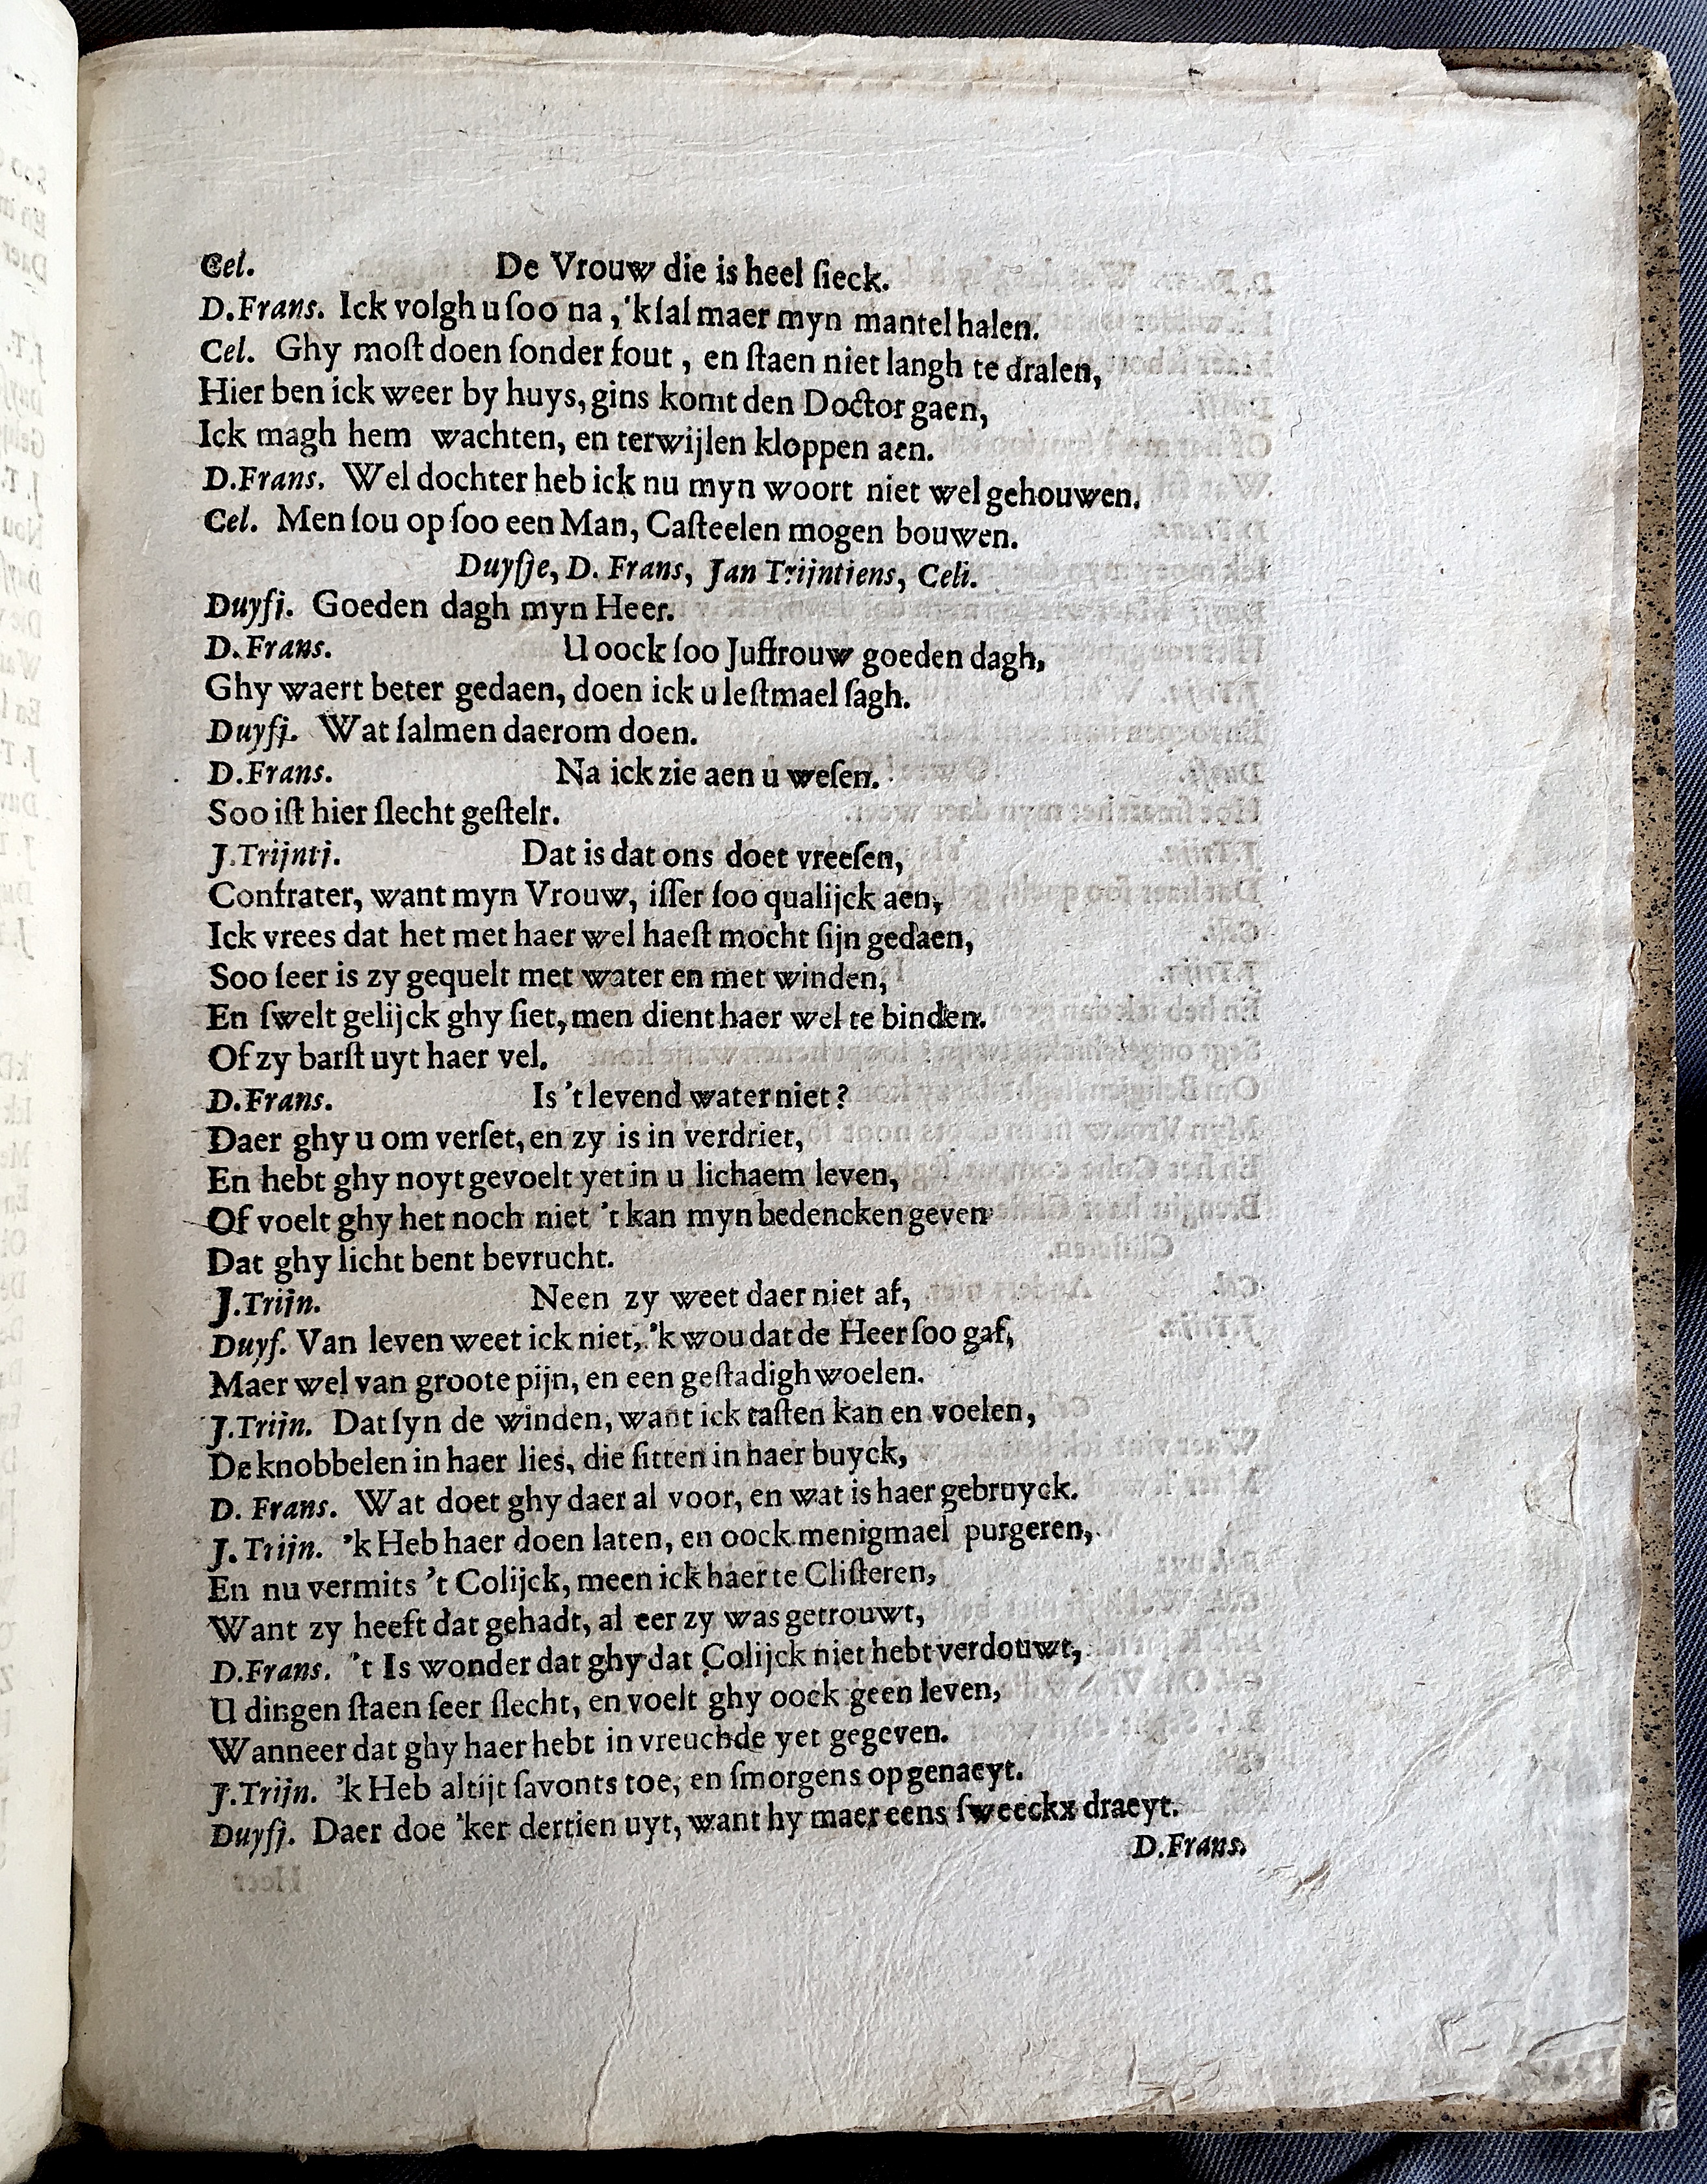 Cel. De Vrouw die is heel ſieck.
D.Frans. Ick volgh u ſoo na, 'k ſal maer myn mantel halen.
Cel. Ghy moſt doen ſonder fout, en ſtaen niet langh te dralen,
Hier ben ick weer by huys, gins komt den Doctor gaen,
Ick magh hem wachten, en terwijlen kloppen aen.
D.Frans. Wel dochter heb ick nu myn woort niet wel gehouwen.
Cel. Men ſou op ſoo een Man, Caſteelen mogen bouwen.
Duyſje, D. Frans, Jan Trijntiens, Celi.
Duyſi. Goeden dagh myn Heer.
D.Frans. U oock ſoo Juffrouw goeden dagh,
Ghy waert beter gedaen, doen ick u leſtmael ſagh.
Duyſj. Wat ſalmen daerom doen.
D.Frans. Na ick zie aen u weſen.
Soo iſt hier ſlecht geſtelr.
J.Trijnti. Dat is dat ons doet vreeſen,
Confrater, want myn Vrouw, iſſer ſoo qualijck aen,
Ick vrees dat het met haer wel haeſt mocht ſijn gedaen,
Soo ſeer is zy gequelt met water en met winden,
En ſwelt gelijck ghy ſiet, men dient haer wel te binden.
Of zy barſt uyt haer vel.
D.Frans. Is 't levend water niet?
Daer ghy u om verſet, en zy is in verdriet,
En hebt ghy noyt gevoelt yet in u lichaem leven,
Of voelt ghy het noch niet 't kan myn bedencken geven
Dat ghy licht bent bevrucht.
J.Trijn. Neen zy weet daer niet af,
Duyſ. Van leven weet ick niet, 'k wou dat de Heer ſoo gaf,
Maer wel van groote pijn, en een geſtadigh woelen.
J.Trijn. Dat ſyn de winden, want ick taſten kan en voelen,
De knobbelen in haer lies, die ſitten in haer buyck,
D. Frans. Wat doet ghy daer al voor, en wat is haer gebruyck.
J.Trijn. 'k Heb haer doen laten, en oock menigmael purgeren,
En nu vermits 't Colijck, meen ick haer te Cliſteren,
Want zy heeft dat gehadt, al eer zy was getrouwt,
D.Frans. 't Is wonder dat ghy dat Colijck niet hebt verdouwt,
U dingen ſtaen ſeer ſlecht, en voelt ghy oock geen leven,
Wanneer dat ghy haer hebt in vreuchde yet gegeven.
J.Trijn. 'k Heb altijt ſavonts toe, en ſmorgens opgenaeyt.
Duyſj. Daer doe 'ker dertien uyt, want hy maer eens ſweeckx draeyt.
D.Frans.